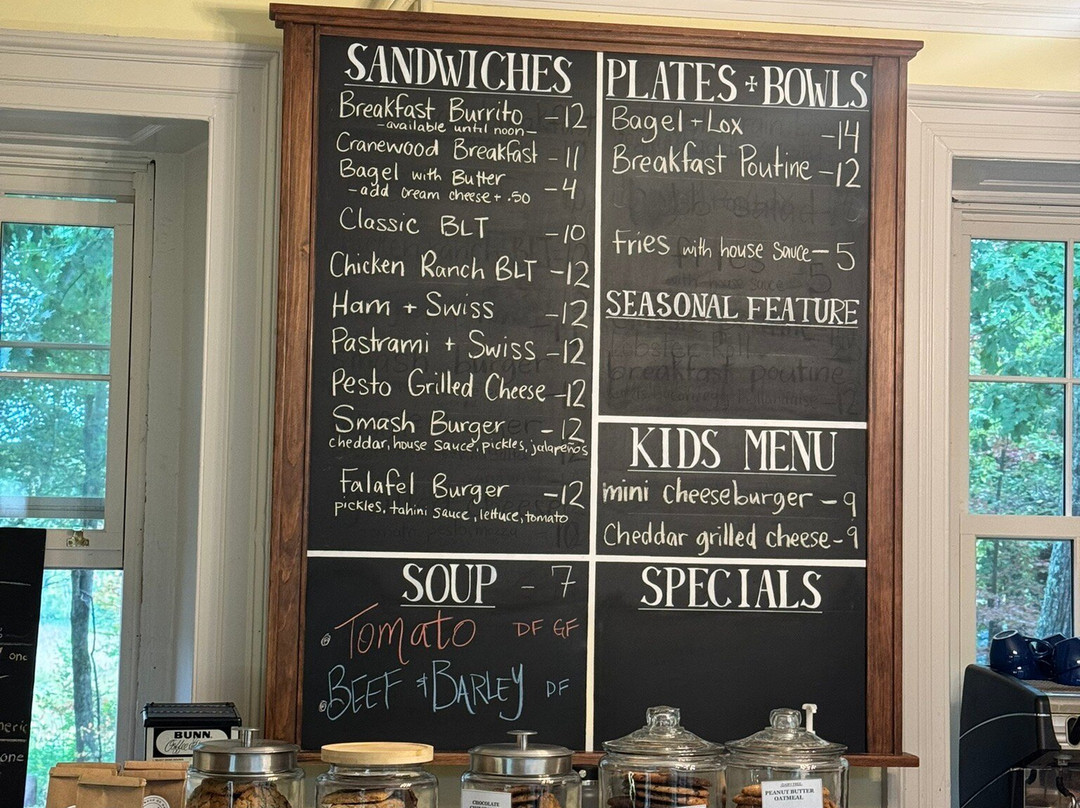 SANDWICHES
Breakfast Burrito -12
-available until noon-
Cranewood Breakfast -11
Bagel with Butter -4
-add cream cheese + .50
Classic BLT -10
Chicken Ranch BLT -12
Ham + Swiss -12
Pastrami + Swiss -12
Pesto Grilled Cheese -12
Smash Burger -12
cheddar, house sauce, pickles, jalapeños
Falafel Burger -12
pickles, tahini sauce, lettuce, tomato
SOUP - 7
Tomato DF GF
BEEF & BARLEY DF
PLATES + BOWLS
Bagel + Lox -14
Breakfast Poutine -12
Fries with house sauce - 5
SEASONAL FEATURE
breakfast poutine
KIDS MENU
mini cheeseburger - 9
Cheddar grilled cheese - 9
SPECIALS
one
one
BUNN
CHOCOLATE
PEANUT BUTTER
OATMEAL